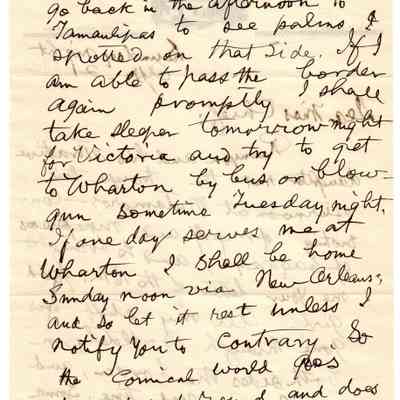 go back in the afternoon to
Tamaulipas to see palms I
spotted on that side. If I
am able to pass the border
again promptly I shall
take sleeper tomorrow night
for Victoria and try to get
to Wharton by bus or blow-
gun sometime Tuesday night.
If one day serves me at
Wharton I shall be home
Sunday noon via New Orleans,
and so let it rest unless I
notify you to contrary. So
the comical world goes
and does